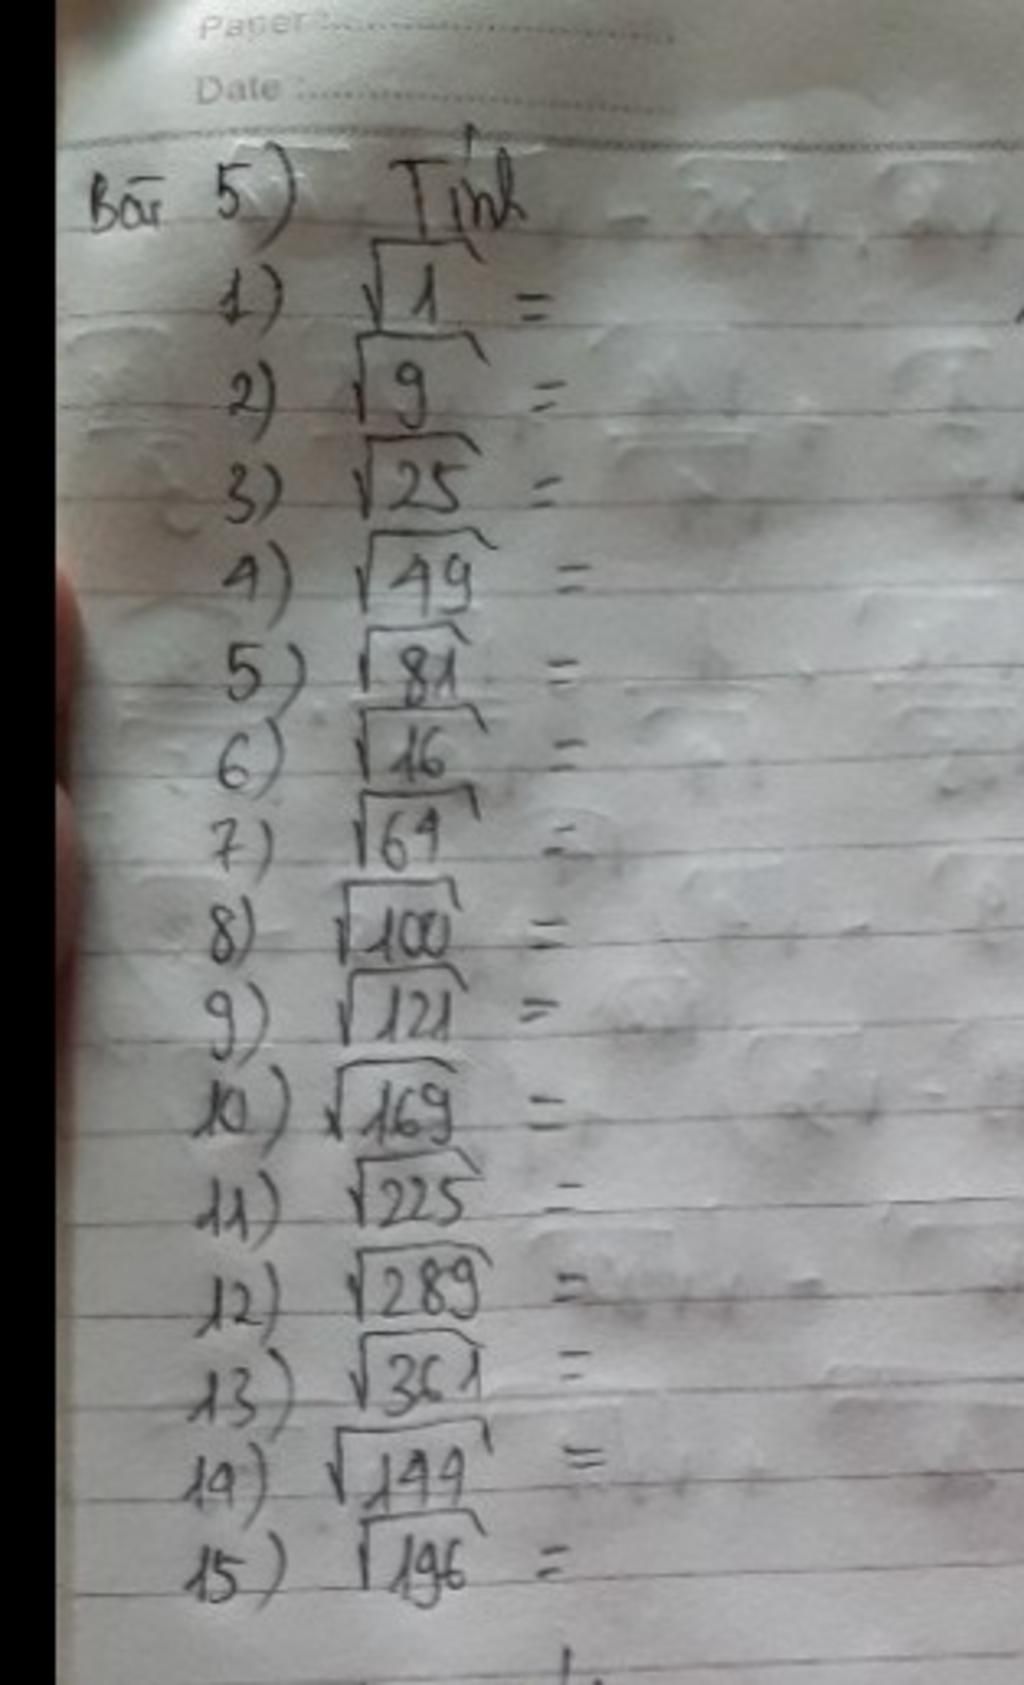 Paper :
Date :
Bài 5) Tính
1) √1 =
2) √9 =
3) √25 =
4) √49 =
5) √81 =
6) √16 =
7) √64 =
8) √100 =
9) √121 =
10) √169 =
11) √225 =
12) √289 =
13) √361 =
14) √144 =
15) √196 =